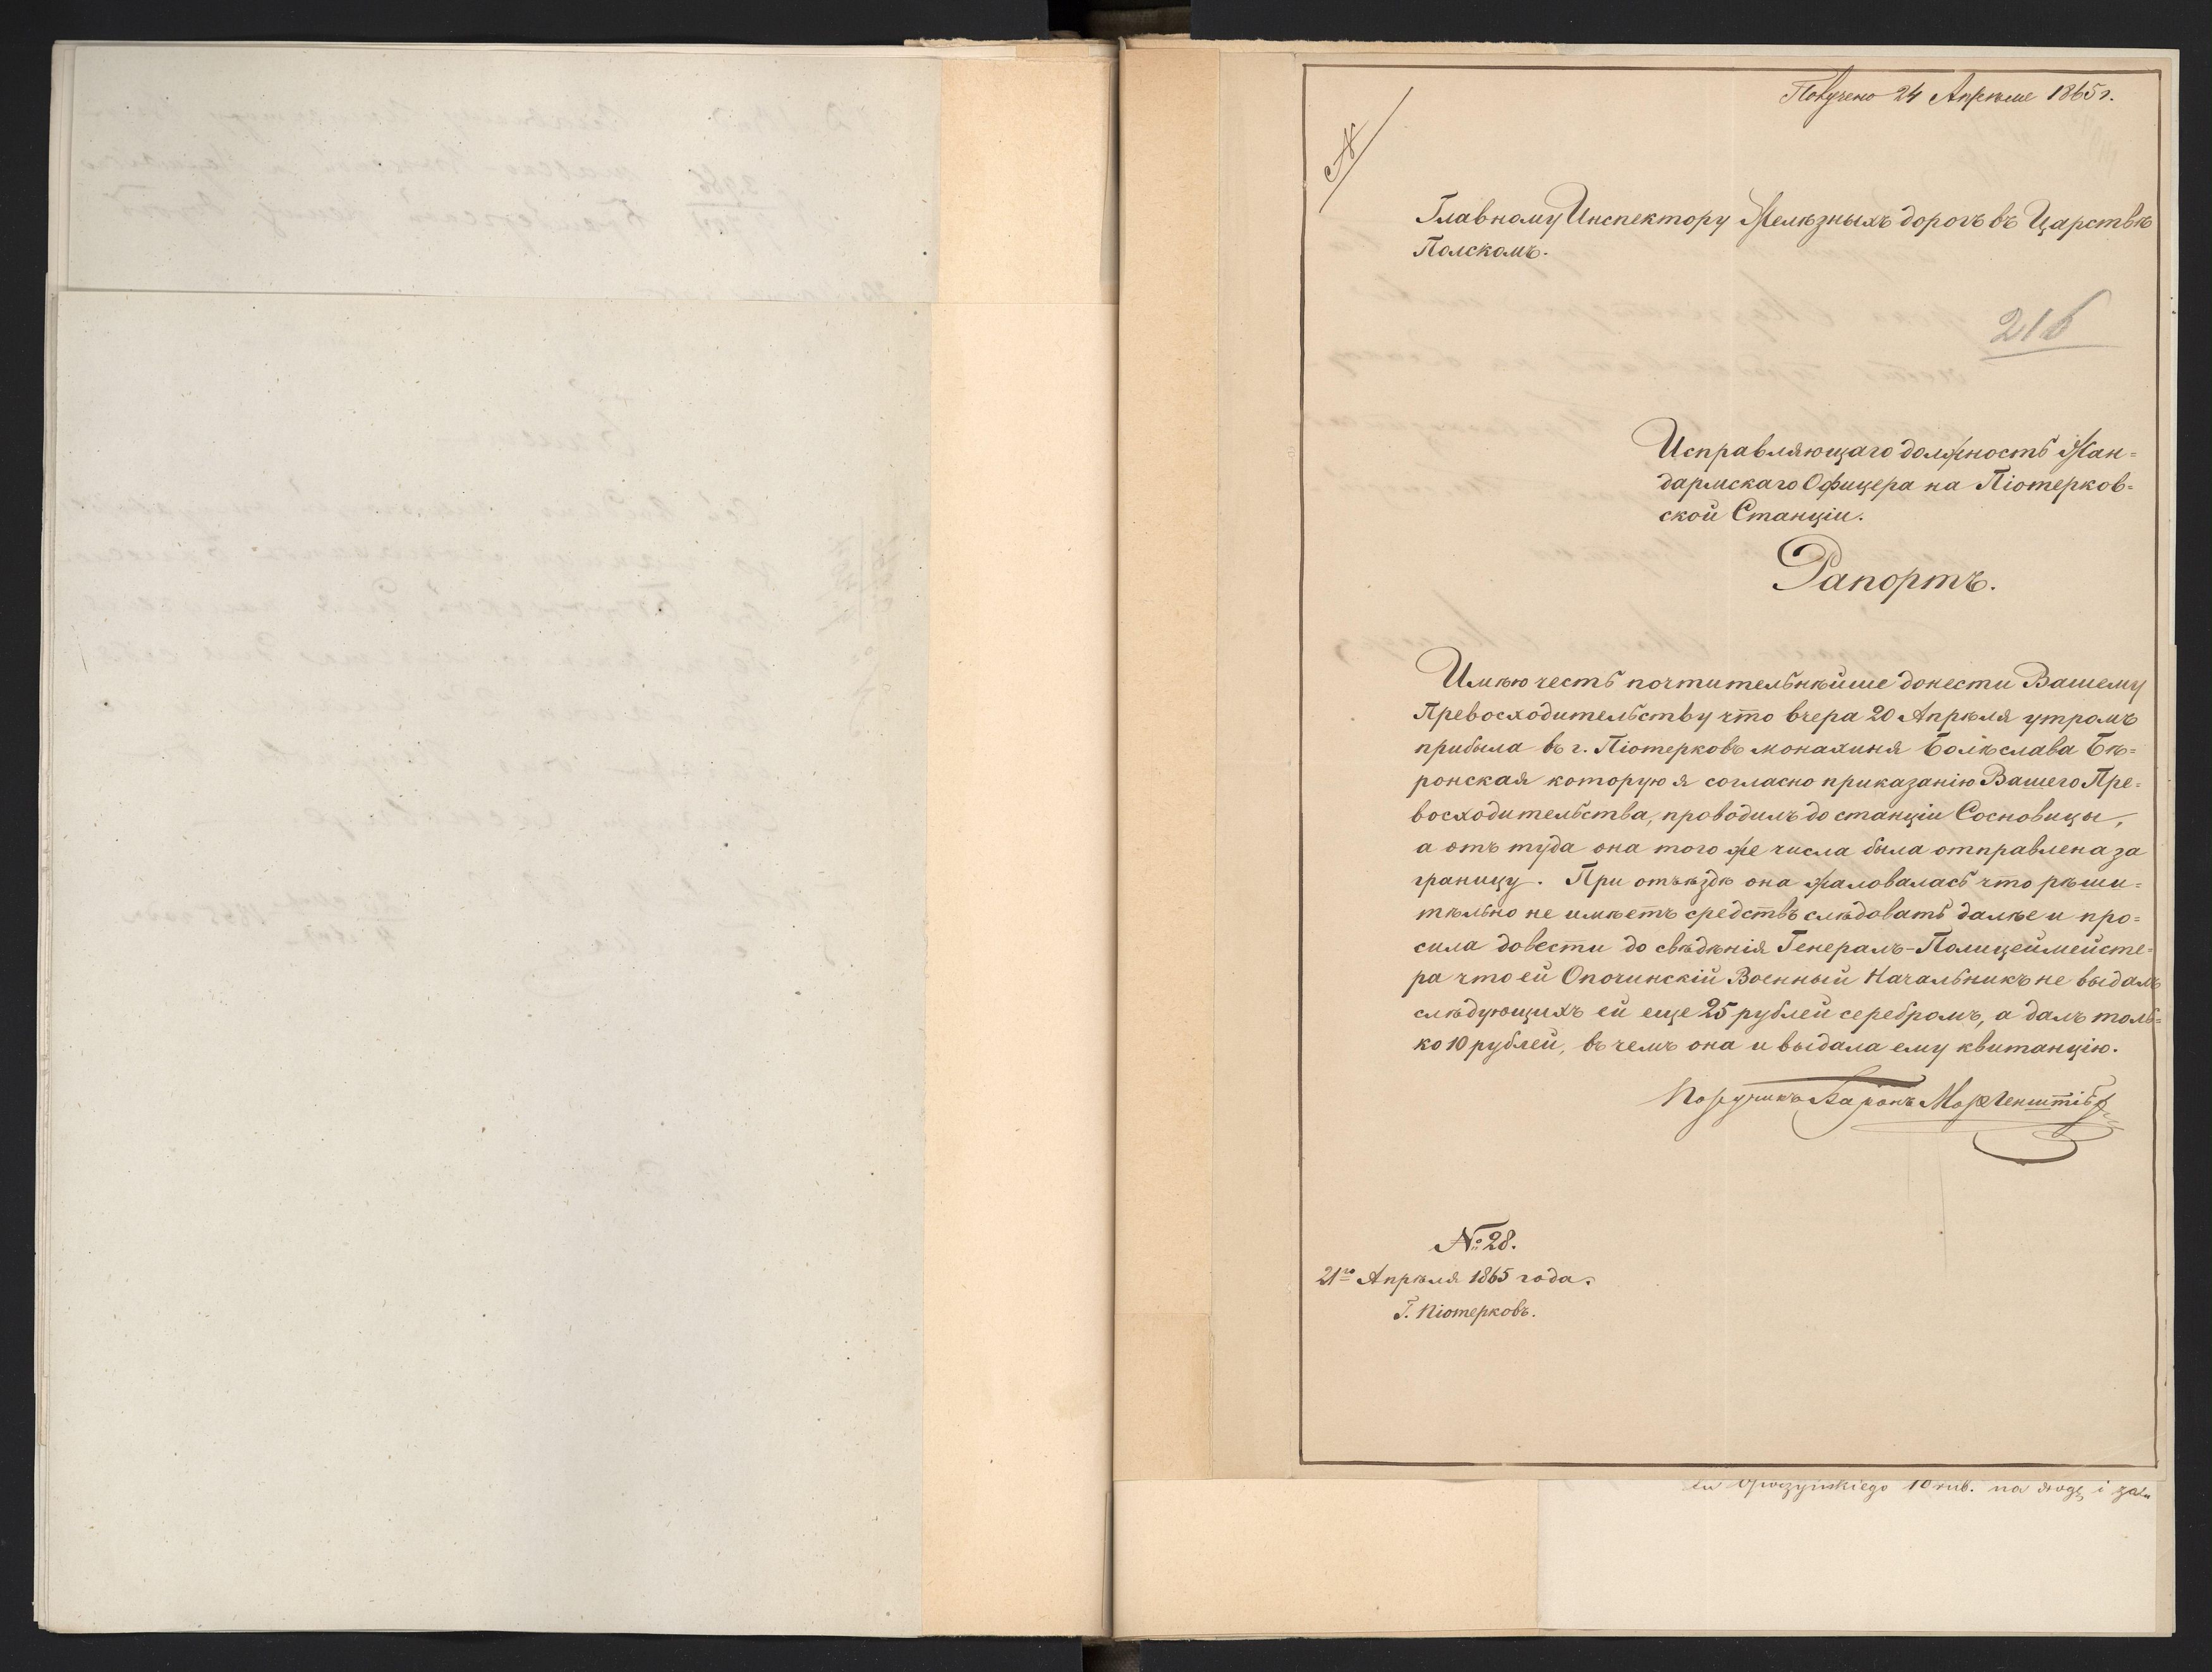 Получено 24 Апреле 1865 г.
№
Главному Инспектору Желѣзныхъ дорогъ въ Царствѣ
Полскомъ.
216
Исправляющаго должность Жан=
дармскаго Офицера на Піотерков=
ской Станціи.
Рапортъ.
Имѣю честь почтительнѣйше донести Вашему
Превосходительству что вчера 20 Апрѣля утромъ
прибыла въ г. Піотерковъ монахиня Болѣслава Бѣ=
ронская которую я согласно приказанію Вашего Пре=
восходительства, проводилъ до станціи Сосновицы,
а отъ туда она того же числа была отправлена за
границу. При отъѣздѣ она жаловалась что рѣши=
тѣльно не имѣетъ средствъ слѣдовать далѣе и про=
сила довести до свѣдѣнія Генералъ-Полицеймейсте=
ра что ей Опочинскій Военный Начальникъ не выдалъ
слѣдующихъ ей еще 25 рублей серебромъ, а далъ толь=
ко 10 рублей, въ чемъ она и выдала ему квитанцію.
Поручикъ Баронъ
№ 28.
21го Апрѣля 1865 года.
Г. Піотерковъ.
Opoczyńskiego 10 rub. na drogę i